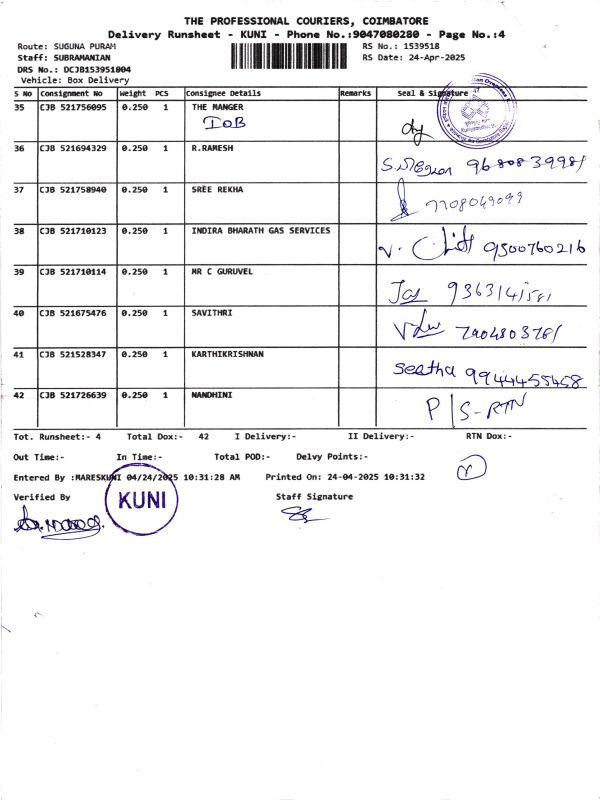 THE PROFESSIONAL COURIERS, COIMBATORE
Delivery Runsheet - KUNI - Phone No.:9047080280 - Page No.:4
Route: SUGUNA PURAM RS No.: 1539518
Staff: SUBRAMANIAN RS Date: 24-Apr-2025
DRS No.: DCJB153951804
Vehicle: Box Delivery
S No Consignment No Weight PCS Consignee Details Remarks Seal & Signature
35 CJB 521756095 0.250 1 THE MANGER
IOB
36 CJB 521694329 0.250 1 R.RAMESH
37 CJB 521758940 0.250 1 SREE REKHA
7708049099
38 CJB 521710123 0.250 1 INDIRA BHARATH GAS SERVICES
9500760216
39 CJB 521710114 0.250 1 MR C GURUVEL
40 CJB 521675476 0.250 1 SAVITHRI
41 CJB 521528347 0.250 1 KARTHIKRISHNAN
Seetha 9944455458
42 CJB 521726639 0.250 1 NANDHINI
P/S-RTN
Tot. Runsheet:- 4 Total Dox:- 42 I Delivery:- II Delivery:- RTN Dox:-
Out Time:- In Time:- Total POD:- Delvy Points:-
Entered By :MARESKUNI 04/24/2025 10:31:28 AM Printed On: 24-04-2025 10:31:32
Verified By Staff Signature
KUNI